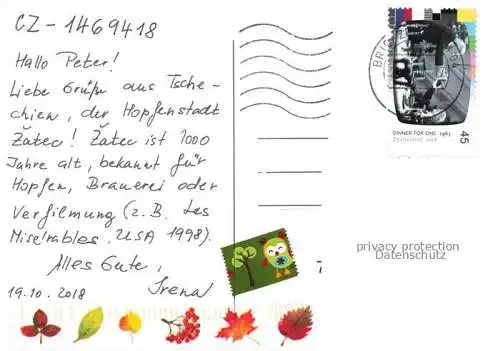 CZ-1469418
Hallo Peter!
Liebe Grüße aus Tsche-
chien, der Hopfenstadt
Žatec! Žatec ist 1000
Jahre alt, bekannt für
Hopfen, Brauerei oder
Verfilmung (z.B. Les
Misérables, USA 1998).
Alles Gute,
Irena
19.10.2018
BRIE
DINNER FOR ONE 1963
Deutschland 2018
45
privacy protection
Datenschutz